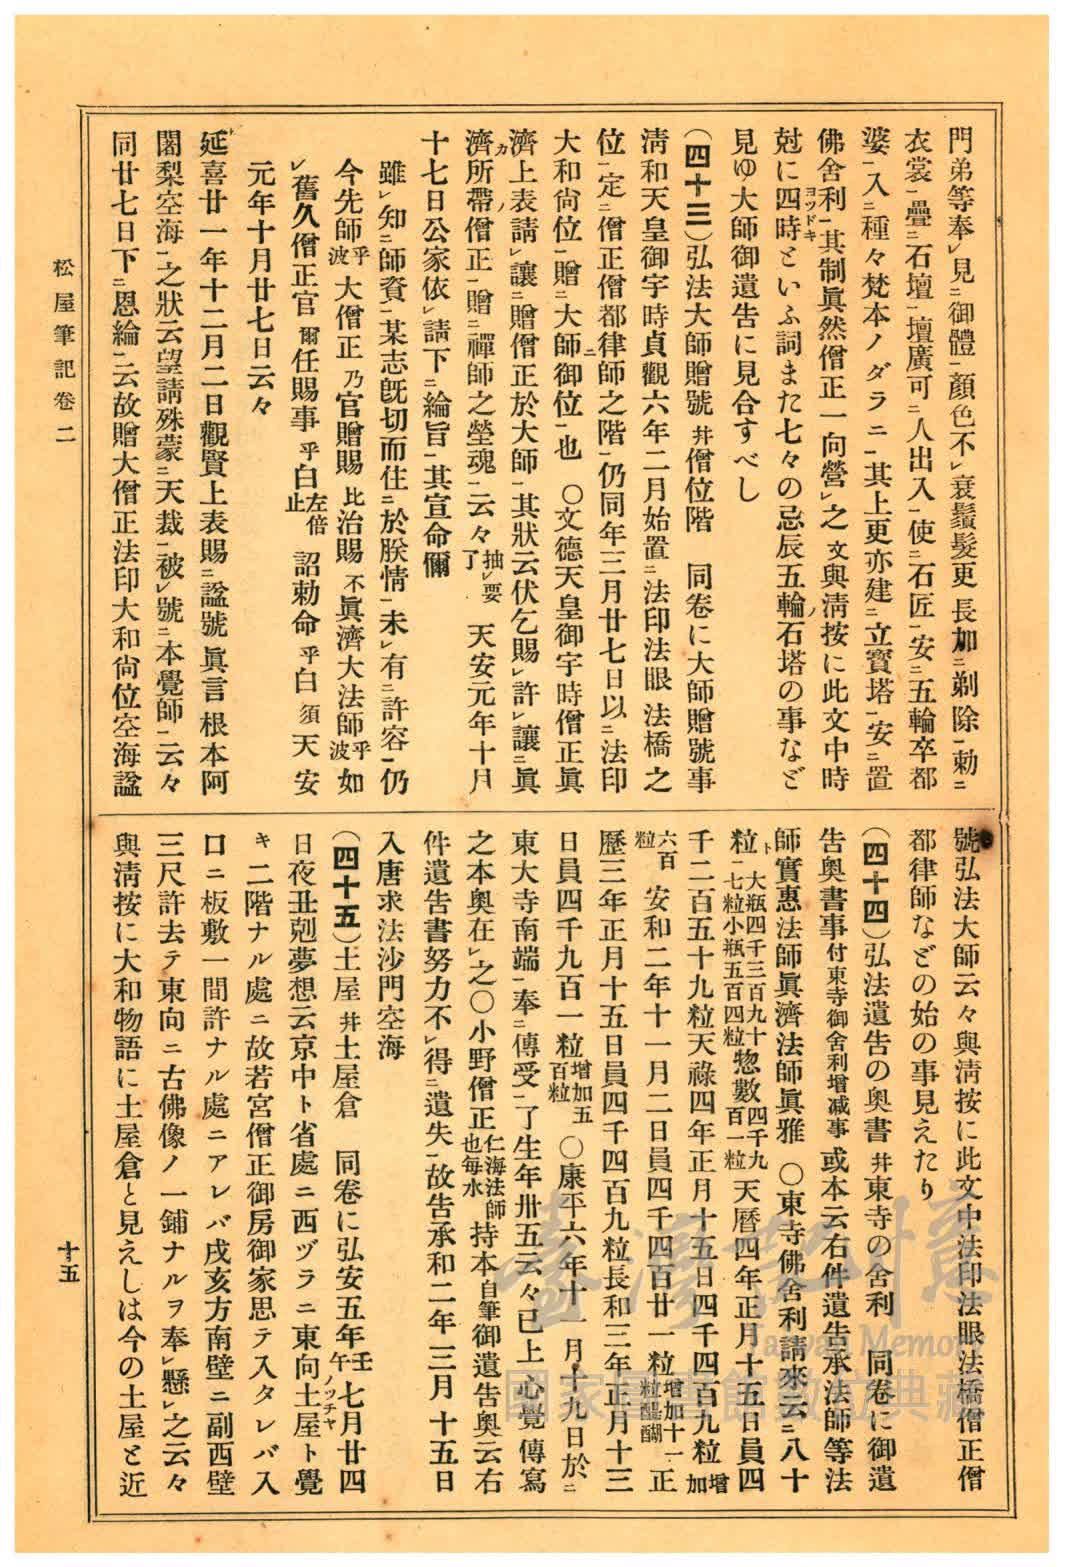 門弟等奉㆑見㆓御體㆒顔色不㆑衰鬚髮更長加㆓剃除㆒勅㆓
衣裳㆒疊㆓石壇㆒壇廣可㆓人出入㆒使㆓石匠㆒安㆓五輪卒都
婆㆒入㆓種々梵本ノダラニ㆒其上更亦建㆓立寶塔㆒安㆓置
佛舍利㆒其制眞然僧正一向營㆑之文與清按に此文中時
尅に四時ヨツドキといふ詞また七々の忌辰五輪ノ石塔の事など
見ゆ大師御遺告に見合すべし
(四十三)弘法大師贈號幷僧位階　同卷に大師贈號事
淸和天皇御宇時貞觀六年二月始置㆓法印法眼法橋之
位㆒定㆓僧正僧都律師之階㆒仍同年三月廿七日以㆓法印
大和尙位㆒贈㆓大師御位㆒也　〇文德天皇御宇時僧正眞
濟上表請㆑讓㆓贈僧正於大師㆒其狀云伏乞賜㆑許㆑讓㆓眞
濟カ所ノ帶僧正㆒贈㆓禪師之塋魂㆒云々抽㆑要了　天安元年十月
十七日公家依㆑請下㆓綸旨㆒其宣命儞
雖㆑知㆓師資㆒某志旣切而住㆓於朕情㆒未㆑有㆓許容㆒仍
今先師乎波大僧正乃官贈賜比治賜不眞濟大法師乎波如
㆑舊久僧正官爾任賜事乎白左倍止　詔勅命乎白須天安
元年十月廿七日云々
延喜廿一年十二月二日觀賢上表賜㆓諡號㆒眞言根本阿
闍梨空海㆒之狀云望請殊蒙㆓天裁㆒被㆑號㆓本覺師㆒云々
同廿七日下㆓恩綸㆒云故贈大僧正法印大和尙位空海諡
號弘法大師云々與淸按に此文中法印法眼法橋僧正僧
都律師などの始の事見えたり
(四十四)弘法遺告の奧書幷東寺の舍利　同卷に御遺
告奧書事付東寺御舍利增减事或本云右件遺告承法師等法
師實惠法師眞濟法師眞雅　〇東寺佛舍利請來云ニ八十
粒ト大瓶四千三百九十一七粒小瓶五百四粒惣數四千九百一粒天曆四年正月十五日員四
千二百五十九粒天祿四年正月十五日四千四百九粒增加
六百粒　安和二年十一月二日員四千四百廿一粒增加十一粒醍醐正
曆三年正月十五日員四千四百九粒長和三年正月十三
日員四千九百一粒增加五百粒　〇康平六年十一月十九日於㆓
東大寺南端㆒奉㆓傳受㆒了生年卅五云々已上心覺傳寫
之本奧在㆑之〇小野僧正仁海法師也每水持本自筆御遺告奧云右
件遺告書努力不㆑得㆓遺失㆒故告承和二年三月十五日
入唐求法沙門空海
(四十五)土屋幷土屋倉　同卷に弘安五年壬午七月廿四
日夜丑剋夢想云京中ト省處ニ西ヅラニ東向土屋ノツチヤト覺
キ二階ナル處ニ故若宮僧正御房御家思テ入タレバ入
口ニ板敷一間許ナル處ニアレバ戌亥方南壁ニ副西壁
三尺許去テ東向ニ古佛像ノ一鋪ナルヲ奉㆑懸㆑之云々
與淸按に大和物語に土屋倉と見えしは今の土屋と近
松屋筆記卷二
十五
臺灣記憶
Taiwan Memory
國家圖書館數位典藏